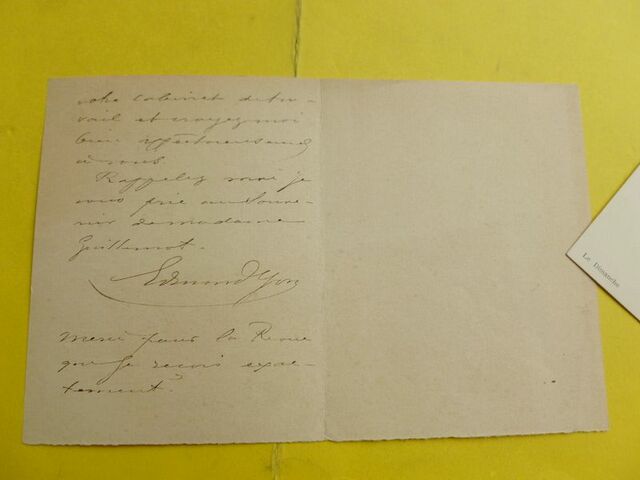 votre cabinet de tra-
vail et croyez moi
bien affectueusement
à vous.
Rappelez moi je
vous prie au souve-
nir de madame
Guillemot.
Edmond Yon
Merci pour la Revue
que je reçois exac-
tement.
Le Dimanche